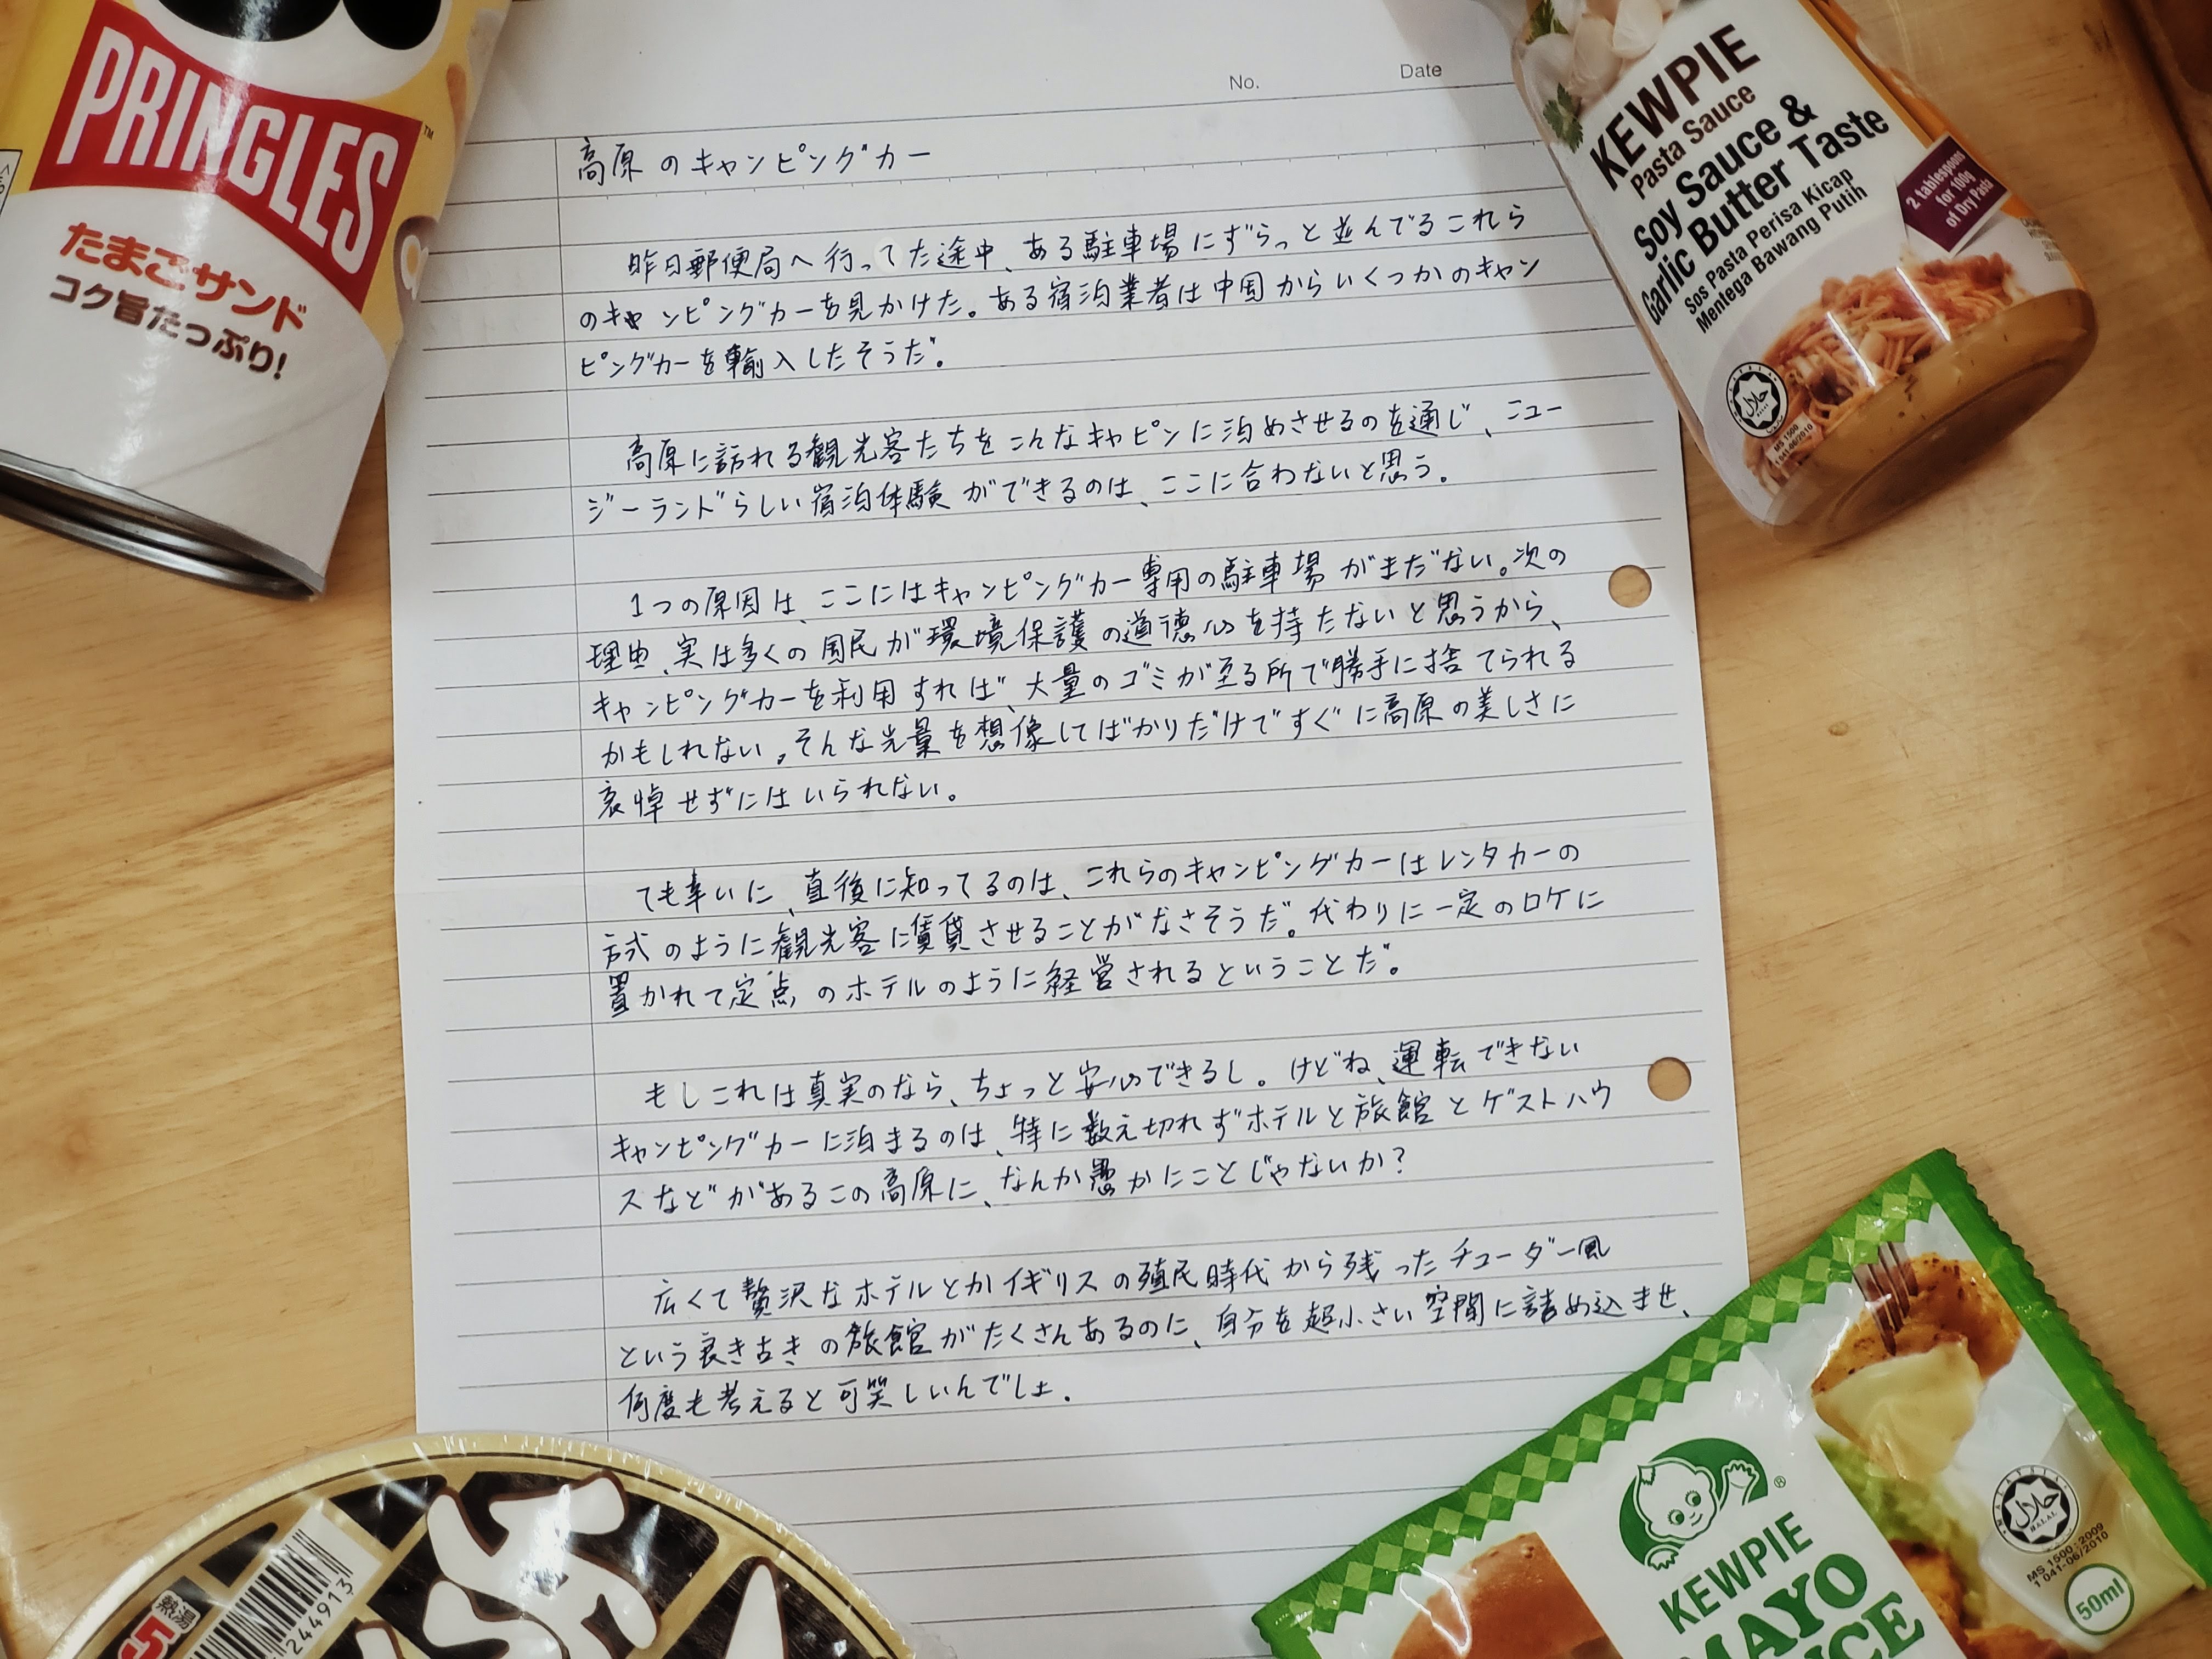 PRINGLES
TM
たまごサンド
コク旨たっぷり!
No.
Date
KEWPIE
Pasta Sauce
Soy Sauce &
Garlic Butter Taste
Sos Pasta Perisa Kicap
Mentega Bawang Putih
2 tablespoons
for 100g
of Dry Pasta
MS 1500
1 041-06/2010
高原のキャンピングカー
昨日郵便局へ行ってた途中、ある駐車場にずらっと並んでるこれら
のキャンピングカーを見かけた。ある宿泊業者は中国からいくつかのキャン
ピングカーを輸入したそうだ。
高原に訪れる観光客たちをこんなキャピンに泊めさせるのを通じ、ニュー
ジーランドらしい宿泊体験ができるのは、ここに合わないと思う。
1つの原因は、ここにはキャンピングカー専用の駐車場がまだない。次の
理由、実は多くの国民が環境保護の道徳心を持たないと思うから、
キャンピングカーを利用すれば、大量のゴミが至る所で勝手に捨てられる
かもしれない。そんな光景を想像してばかりだけですぐに高原の美しさに
哀悼せずにはいられない。
ても幸いに、直後に知ってるのは、これらのキャンピングカーはレンタカーの
方式のように観光客に賃貸させることがなさそうだ。代わりに一定のロケに
置かれて定点のホテルのように経営されるということだ。
もしこれは真実のなら、ちょっと安心できるし。けどね、運転できない
キャンピングカーに泊まるのは、特に数え切れずホテルと旅館とゲストハウ
スなどがあるこの高原に、なんか愚かにことじゃないか?
広くて贅沢なホテルとかイギリスの殖民時代から残ったチューダー風
という良き古きの旅館がたくさんあるのに、自分を超小さい空間に詰め込ませ、
何度も考えると可笑しいんでしょ.
熱湯
5
244913
KEWPIE
MAYO
MS 1500:2009
1 041-06/2010
50ml